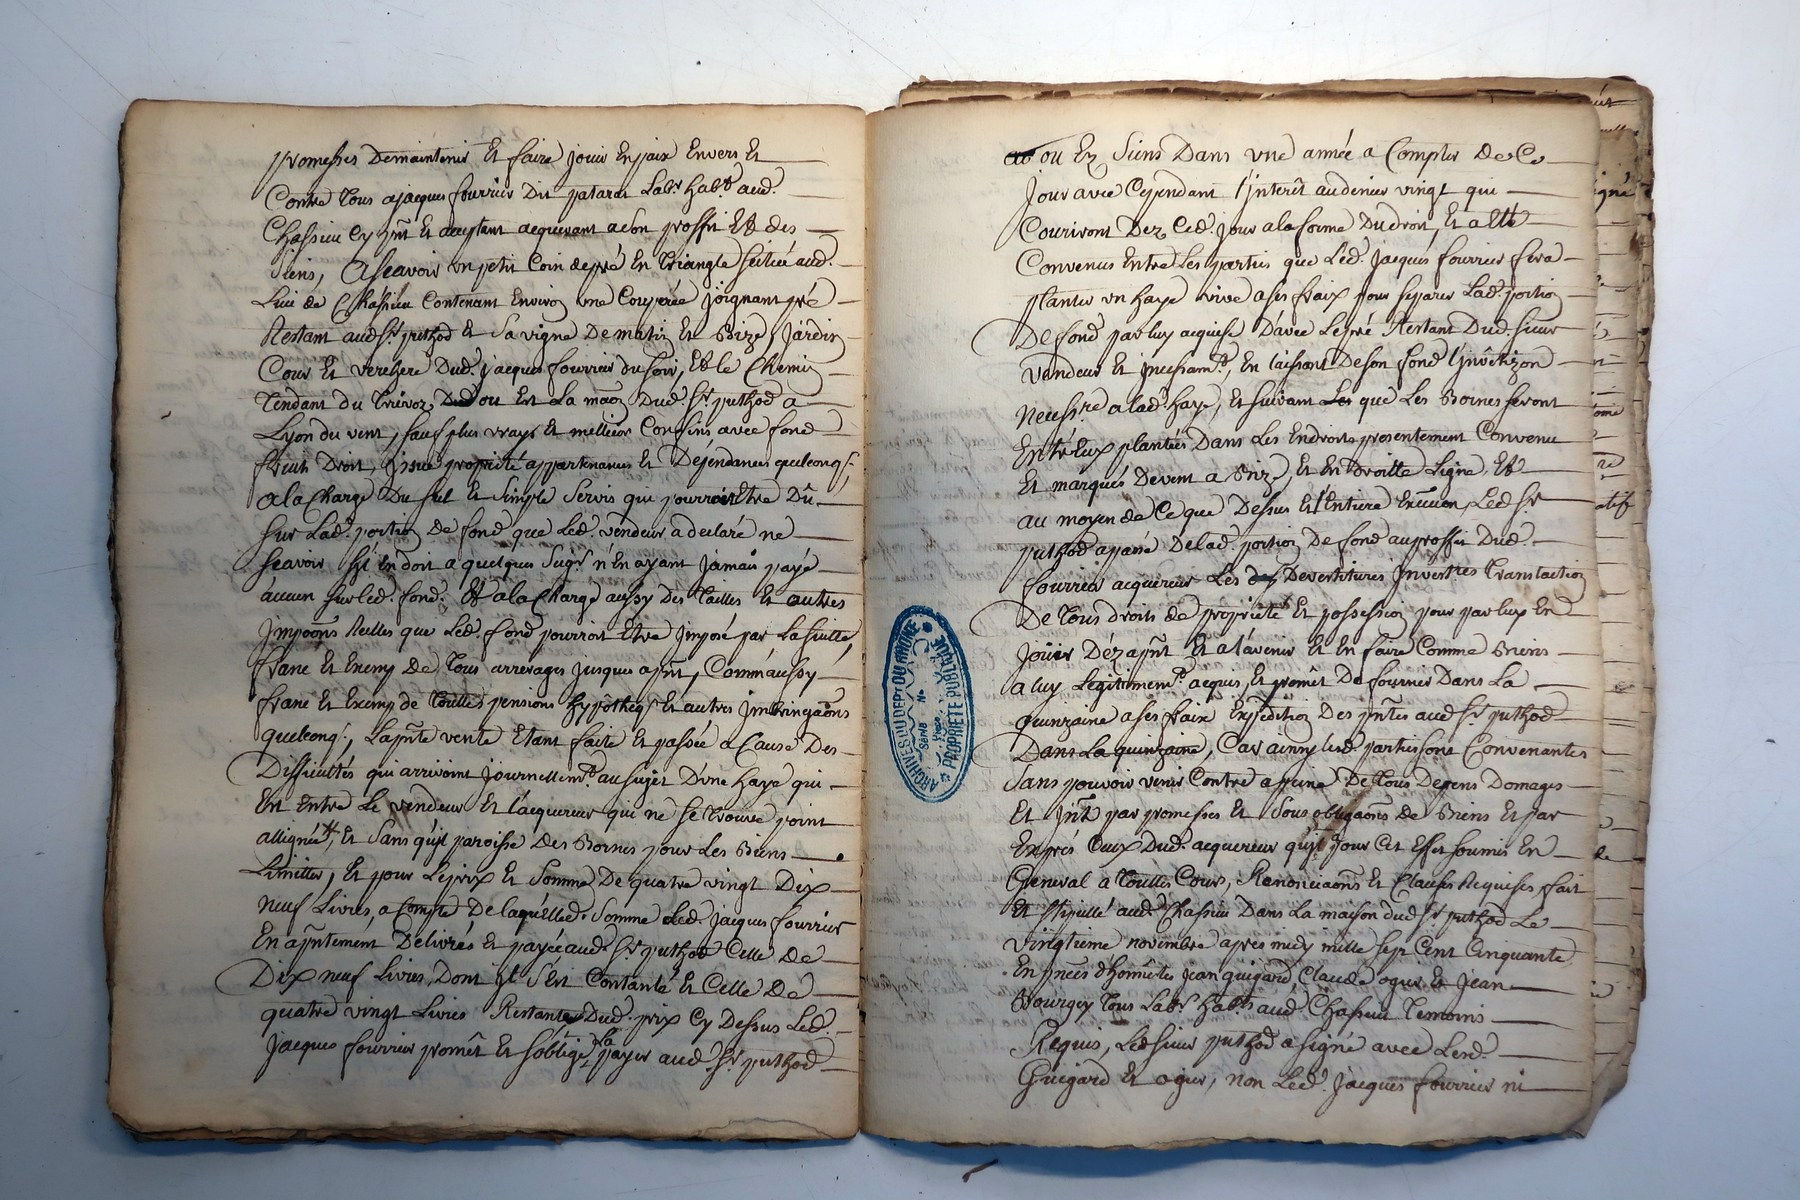 promesses Demaintenir Et faire jouir Enpaix Envers Et
Contre Tous ajacques fourrier Dit patarat Labr. habt. aud.
Chassieu Cy pnt Et aceptant acquerant ason proffit Et des
Siens, Ascavoir un petit Coin depré En Triangle scitué aud.
Lieu de Chassieu Contenant Environ une Couperée joignant pré
Restant aud Sr. puthod Et Sa vigne De matin Et Bize, jardin
Cour Et verchere Dud. jacques fourrier du soir, Et le Chemin
Tendant du Trevoz Dud ou Est La maon Dud. Sr. puthod a
Lyon du vent, sauf plus vrays Et meilleur Confins, avec fond
fruits Droit, jssue proprieté appartenances Et Dependances quelconqs.
ala Charge Du Seul Et Simple Servis qui pourroit Etre Dû
sur Lad. portion de fond que Led. vendeur a declaré ne
scavoir si'l En doit a quelques Sugr. n'En ayant jamais payé
aucun sur led. fond. Et ala Charge aussy Des Tailles Et autres
Impoons Reelles que Led. fond pourroit Etre jmposé par La suitte,
franc Et Exemp de Tous arrerages jusques apnt, Comm'aussy
franc Et Exemp de Touttes pensions hypotheqs. Et autres jmbringaons
quelconqs., Lapnte vente Etant faite Et passée a Cause Des
Difficultés qui arrivoint journellemt. au sujet D'une haye qui
Est Entre Le vendeur Et l'acquereur qui ne se trouve point
allignée, Et Sans qu'jl paroisse Des Bornes pour Les Biens
Limitter, Et pour Leprix Et Somme De quatre vingt Dix
neuf Livres, a Compte De laquelled. Somme Led. jacques fourrier
En apntement Delivrés Et payée aud. Sr. puthod Celle de
Dix neuf Livres, Dont jl S'Est Contanté Et Celle De
quatre vingt Livres Restante Dud. prix Cy Dessus Led.
jacques fourrier promêt Et s'oblige La payer aud. Sr. puthod
ou Ez Siens Dans une année a Compter de Ce
jour avec Cependant l'jnterêt au denier vingt qui
Couriront Dez Ced. jour ala forme Du droit, Et a Eté
Convenus Entre Les parties que Led. jacques fourrier fera
planter un haye vive a ses fraix pour separer Lad. portion
De fond par luy acquise D'avec Le pré Restant Dud. sieur
vendeur Et jncessamt., En laissant De son fond l'jnvêtizon
necessre a lad. haye, Et suivant que Les Bornes seront
Entr'Eux plantées Dans Les Endroits presentement Convenu
Et marqués De vent a Bize, Et En Droitte Ligne, Et
au moyen de Ce que Dessus Et l'Entiere Led Sr
puthod a passé De lad. portion De fond au proffit Dud.
fourrier acquereur Les Devestitures Investres Translaction
De Tous droits de proprieté Et possession pour par luy En
jouir Dèz apnt Et a l'avenir Et En faire Comme Biens
a luy Legitimemt. acquis, Et promêt De fournir Dans La
quinzaine a ses fraix Expedition Des pntes aud Sr. puthod
Dans La quinzaine, Car ainsy lesd. parties sont Convenantes
Sans pouvoir venir Contre a peine De Tous Depens Domages
Et Jnt par promesses Et Sous obligaons de Biens Et par
Exprés Ceux Dud. acquereur qu'jl a pour Cet Effet soumis En
General a Touttes Cours, Renonciaons Et Clauses Requises, fait
Et stipullé aud. Chassieu Dans La maison dud Sr. puthod Le
vingtieme novembre apres midy mille sept Cent Cinquante
En pnces d'honnêtes jean guigard, Claude ogier Et jean
Bourgey Tous Labr. habts. aud. Chassieu Temoins
Requis, Led sieur puthod a signé avec Lesd.
Guigard Et ogier, non Led. jacques fourrier ni
ARCHIVES DU DEPT DU RHONE
Série No
PROPRIÉTÉ PUBLIQUE